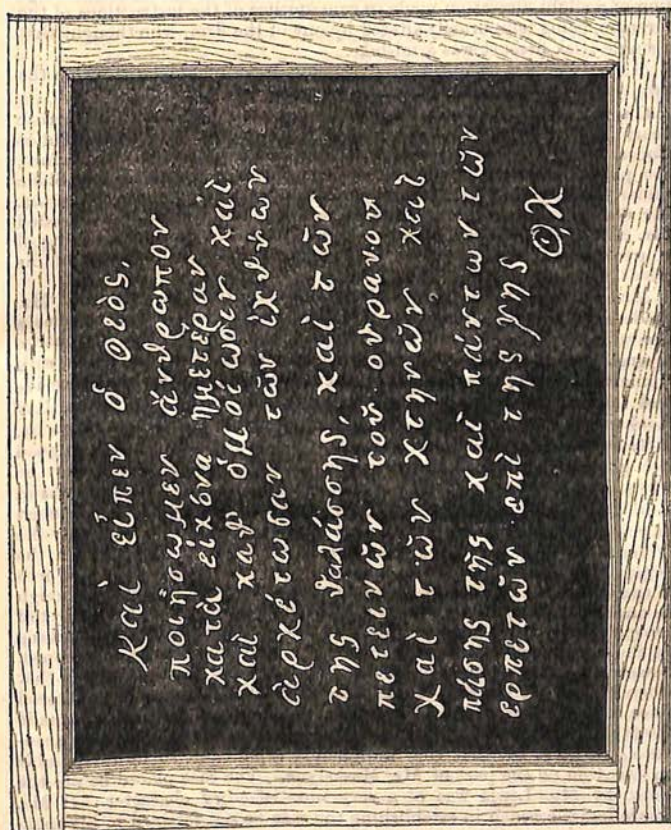 Καὶ εἶπεν ὁ Θεὸς,
ποιήσωμεν ἄνθρωπον
κατὰ εἰκόνα ημετεραν
καὶ καθ' ὁμοίωσιν καὶ
ἀρχέτωσαν τῶν ἰχθύων
της θαλάσσης, καὶ τῶν
πετεινῶν τοῦ ουρανου
καὶ τῶν κτηνῶν καὶ
πάσης τῆς καὶ πάντων τῶν
ερπετῶν επὶ της γης